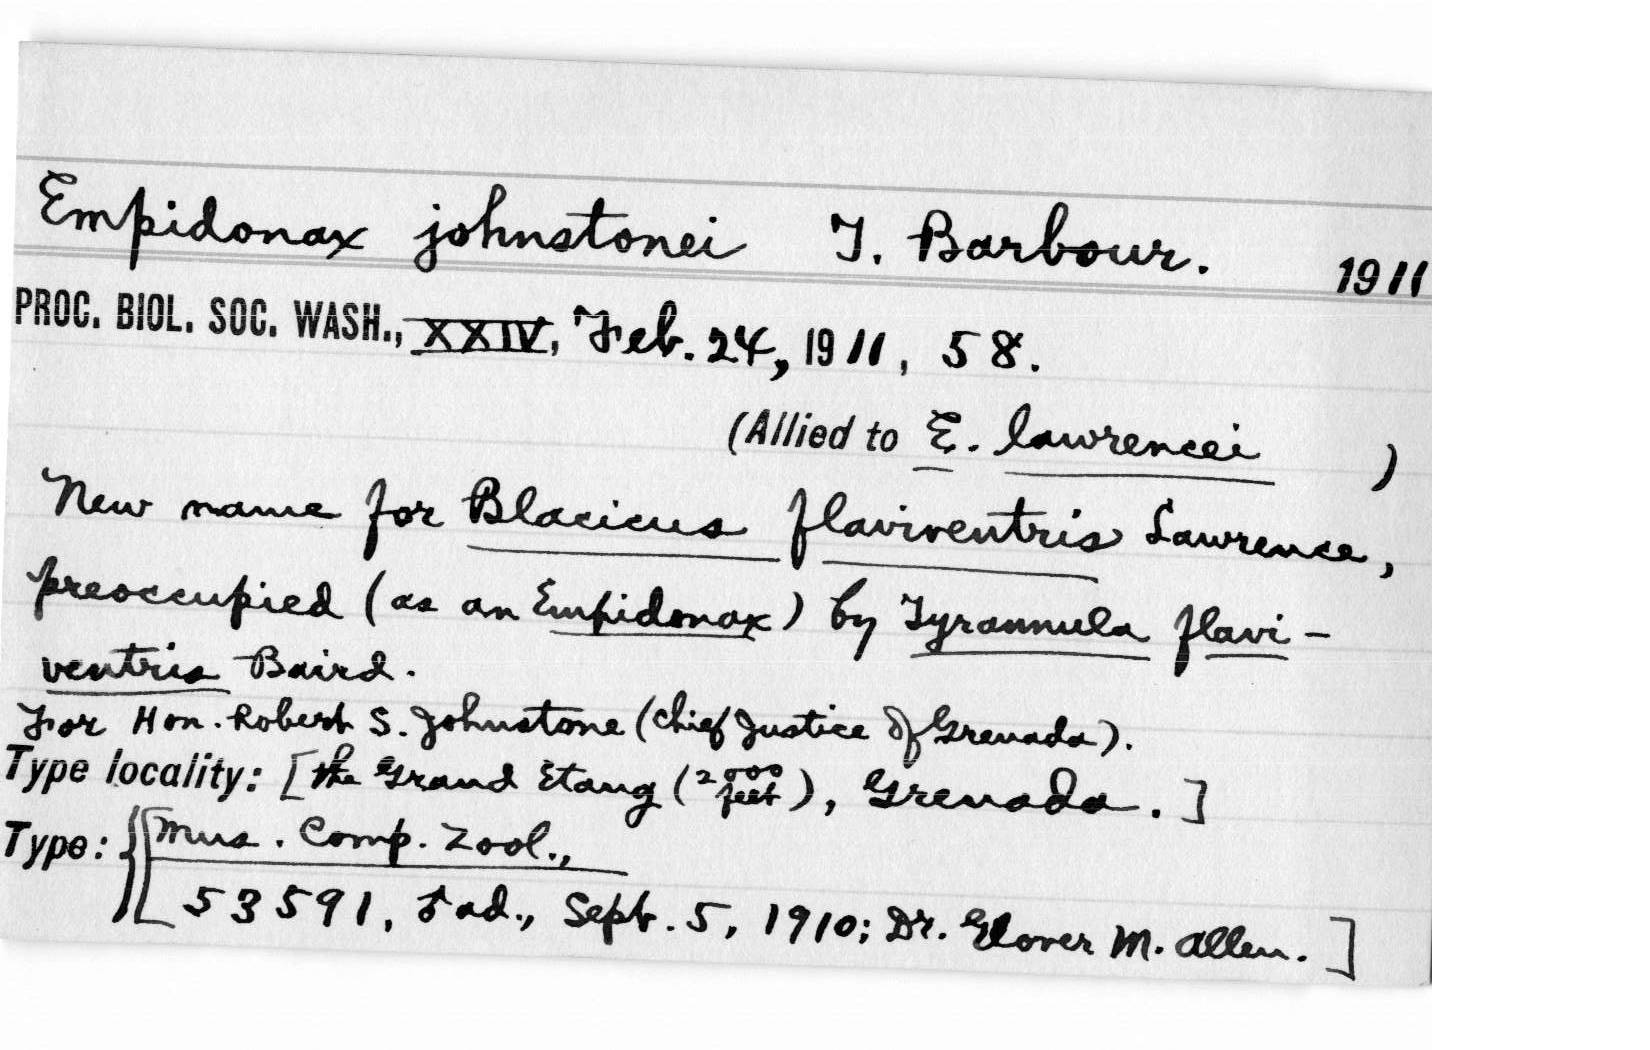 Empidonax johnstonei T. Barbour. 1911
PROC. BIOL. SOC. WASH., XXIV, Feb. 24, 1911, 58.
(Allied to E. lawrencei )
New name for Blacicus flaviventris Lawrence,
preoccupied (as an Empidonax) by Tyrannula flavi-
ventris Baird.
For Hon. Robert S. Johnstone (Chief Justice of Grenada).
Type locality: [the Grand Etang (2000 feet), Grenada.]
Type: {[Mus. Comp. Zool.,
53591, ad., Sept. 5, 1910; Dr. Glover M. Allen.]